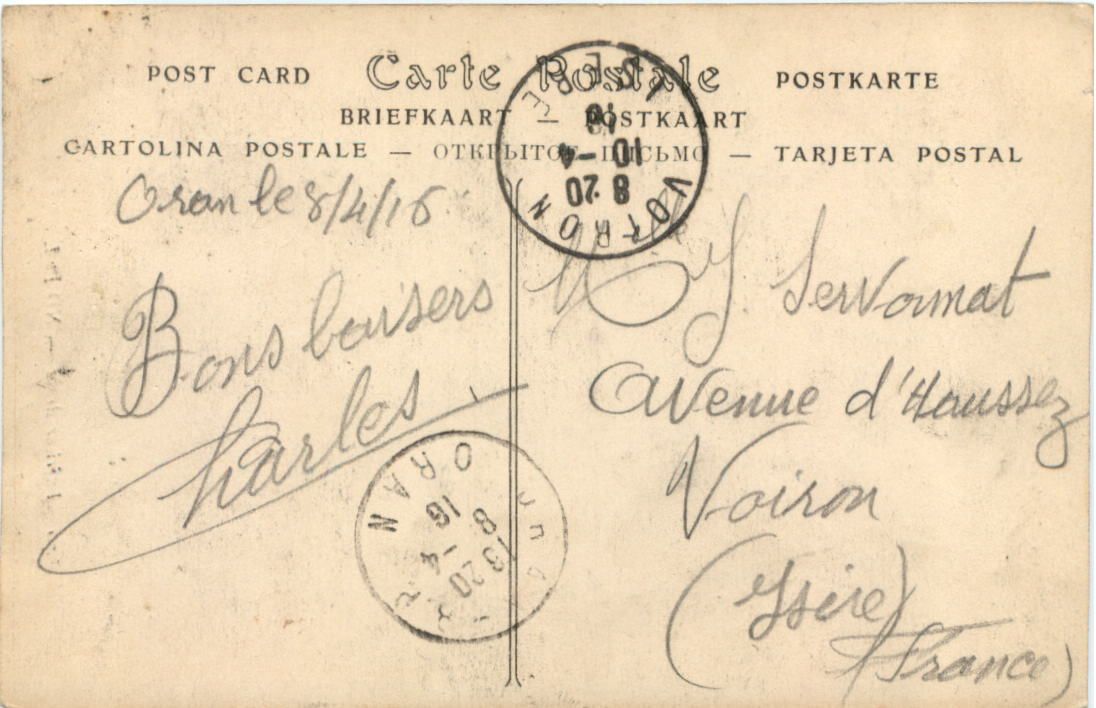 POST CARD Carte Postale POSTKARTE
BRIEFKAART — POSTKAART
CARTOLINA POSTALE — ОТКРЫТОЕ ПИСЬМО — TARJETA POSTAL
Oran le 8/4/16
Bons baisers
Charles
J. Servonnat
Avenue d'Haussez
Voiron
(Isère)
(France)
VOIRON
8 20
10 - 4
16
ISERE
ORAN
13 20
8 4
16
ORAN